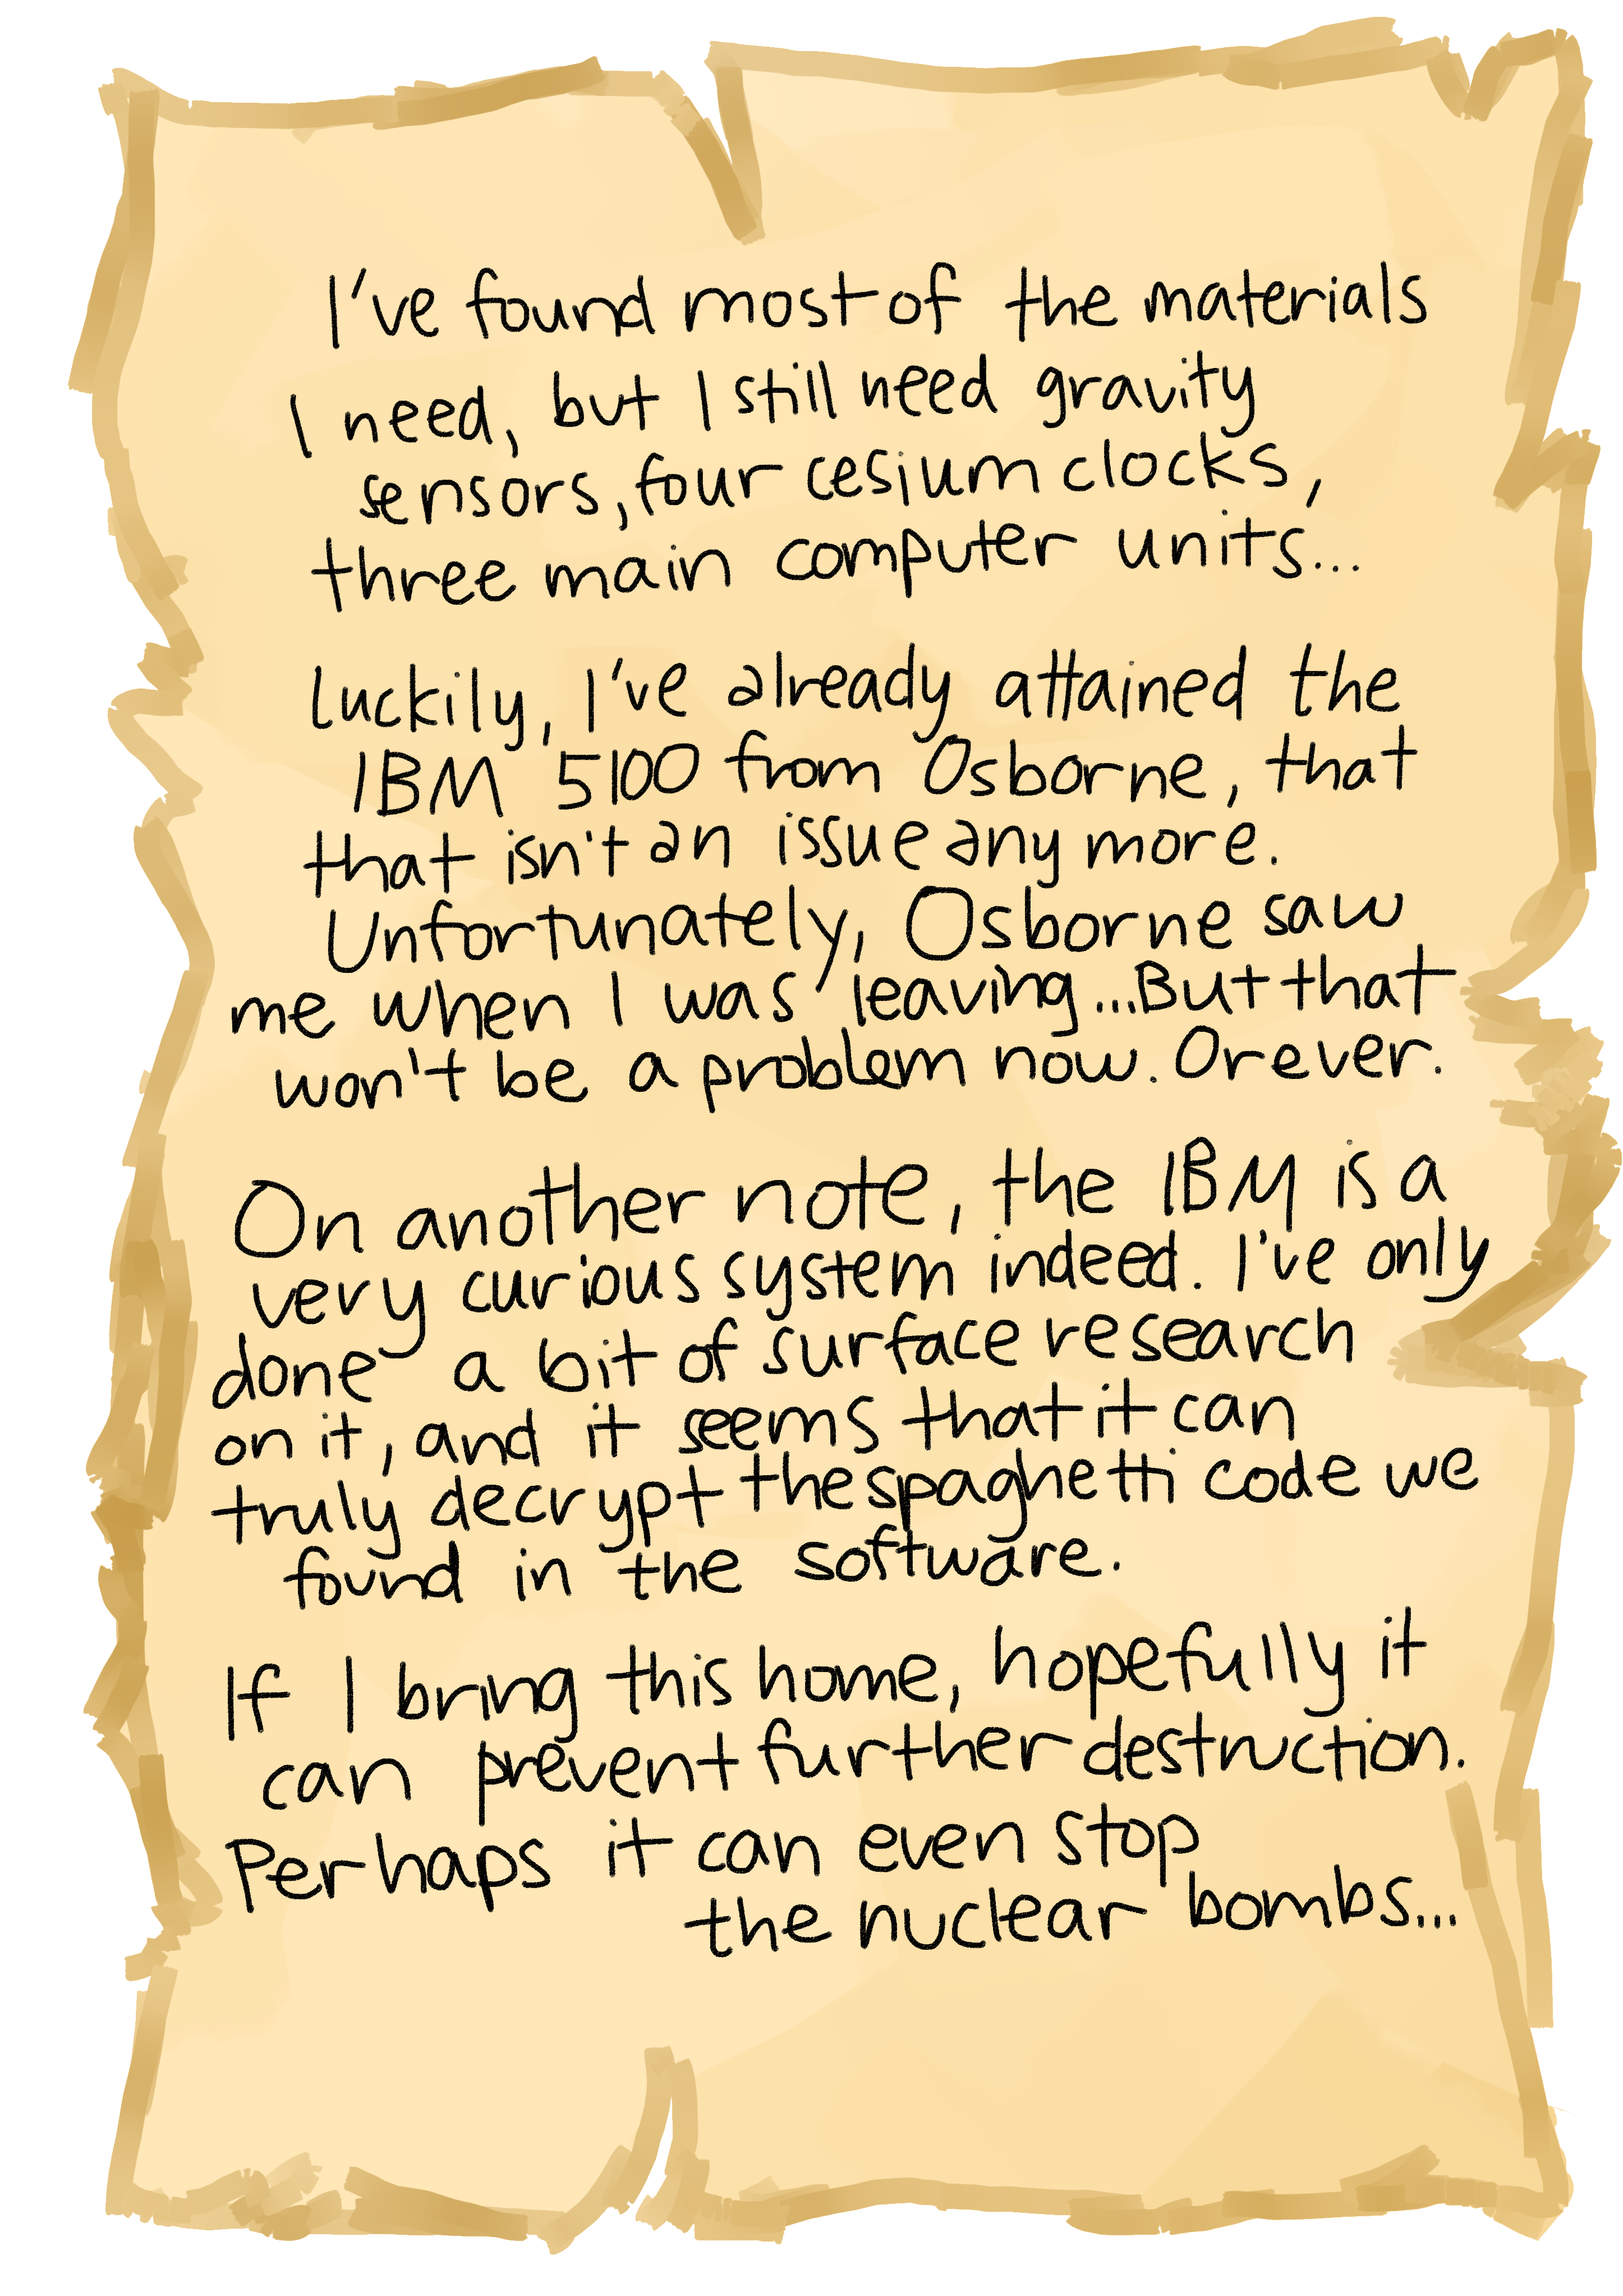 I've found most of the materials
I need, but I still need gravity
sensors, four cesium clocks,
three main computer units...
Luckily, I've already attained the
IBM 5100 from Osborne, that
that isn't an issue any more.
Unfortunately, Osborne saw
me when I was leaving...But that
won't be a problem now. Or ever.
On another note, the IBM is a
very curious system indeed. I've only
done a bit of surface research
on it, and it seems that it can
truly decrypt the spaghetti code we
found in the software.
If I bring this home, hopefully it
can prevent further destruction.
Perhaps it can even stop
the nuclear bombs...